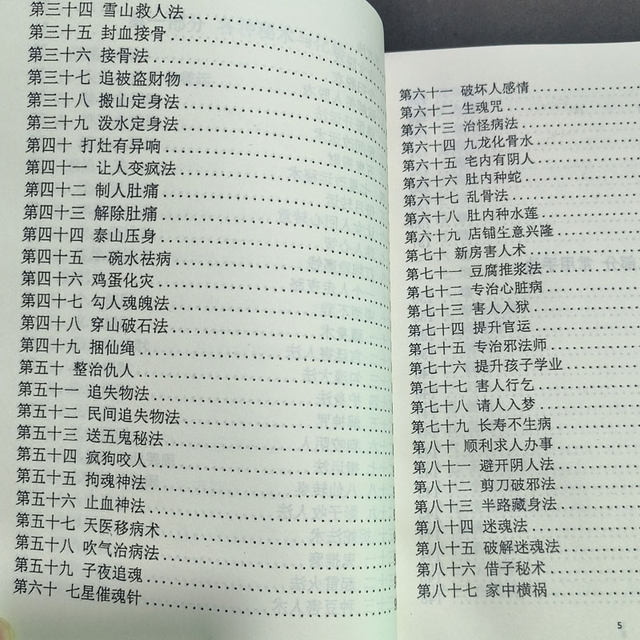 第三十四 雪山救人法
第三十五 封血接骨
第三十六 接骨法
第三十七 追被盗财物
第三十八 搬山定身法
第三十九 泼水定身法
第四十 打灶有异响
第四十一 让人变疯法
第四十二 制人肚痛
第四十三 解除肚痛
第四十四 泰山压身
第四十五 一碗水祛病
第四十六 鸡蛋化灾
第四十七 勾人魂魄法
第四十八 穿山破石法
第四十九 捆仙绳
第五十 整治仇人
第五十一 追失物法
第五十二 民间追失物法
第五十三 送五鬼秘法
第五十四 疯狗咬人
第五十五 拘魂神法
第五十六 止血神法
第五十七 天医移病术
第五十八 吹气治病法
第五十九 子夜追魂
第六十 七星催魂针
第六十一 破坏人感情
第六十二 生魂咒
第六十三 治怪病法
第六十四 九龙化骨水
第六十五 宅内有阴人
第六十六 肚内种蛇
第六十七 乱骨法
第六十八 肚内种水莲
第六十九 店铺生意兴隆
第七十 新房害人术
第七十一 豆腐推浆法
第七十二 专治心脏病
第七十三 害人入狱
第七十四 提升官运
第七十五 专治邪法师
第七十六 提升孩子学业
第七十七 害人行乞
第七十八 请人入梦
第七十九 长寿不生病
第八十 顺利求人办事
第八十一 避开阴人法
第八十二 剪刀破邪法
第八十三 半路藏身法
第八十四 迷魂法
第八十五 破解迷魂法
第八十六 借子秘术
第八十七 家中横祸
5